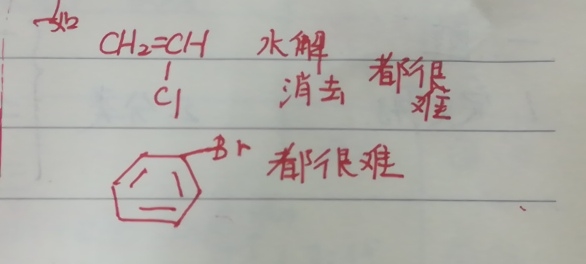 CH₂=CH 水解
Cl 消去 都很难
Br 都很难